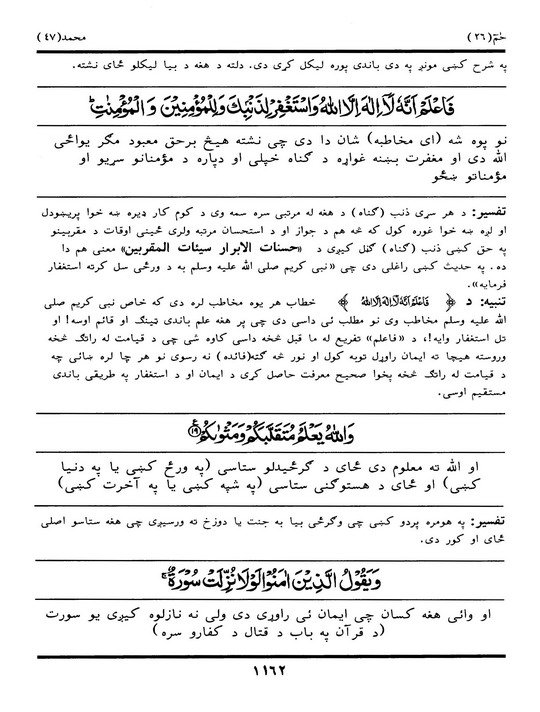 حٰمٓ (٢٦) محمد (٤٧)
په شرح کښی مونږ په دی باندی پوره لیکل کړی دی. دلته د هغه د بیا لیکلو ځای نشته.
فَاعْلَمْ اَنَّهٗ لَآ اِلٰهَ اِلَّا اللّٰهُ وَاسْتَغْفِرْ لِذَنْۢبِكَ وَلِلْمُؤْمِنِيْنَ وَالْمُؤْمِنٰتِ ؕ
نو پوه شه (ای مخاطبه) شان دا دی چی نشته هیڅ برحق معبود مگر یوائی
الله دی او مغفرت بښنه غواړه د گناه خپلی او دپاره د مؤمنانو سړیو او
مؤمناتو ښځو
تفسیر: د هر سړی ذنب (گناه) د هغه له مرتبی سره سمه وی د کوم کار ډیره ښه خوا پریښودل
او لږه ښه خوا غوره کول که څه هم د جواز او د استحسان مرتبه ولری ځینی اوقات د مقربینو
په حق کښی ذنب (گناه) گڼل کیږی د «حسنات الابرار سیئات المقربین» معنی هم دا
ده. په حدیث کښی راغلی دی چی «نبی کریم صلی الله علیه وسلم به د ورځی سل کرته استغفار
فرمایه».
تنبیه: د ﴿ فَاعْلَمْ اَنَّهٗ لَآ اِلٰهَ اِلَّا اللّٰهُ ﴾ خطاب هر یوه مخاطب لره دی که خاص نبی کریم صلی
الله علیه وسلم مخاطب وی نو مطلب ئی داسی دی چی پر هغه علم باندی ټینگ او قائم اوسه! او
تل استغفار وایه!، د «فاعلم» تفریع له ما قبل څخه داسی کاوه شی چی د قیامت له راتگ څخه
وروسته هیچا ته ایمان راوړل توبه کول او نور څه گټه(فائده) نه رسوی نو هر چا لره ښائی چه
د قیامت له راتگ څخه پخوا صحیح معرفت حاصل کړی د ایمان او د استغفار په طریقی باندی
مستقیم اوسی.
وَاللّٰهُ يَعْلَمُ مُتَقَلَّبَكُمْ وَمَثْوٰىكُمْ ۟ ﴿١٩﴾
او الله ته معلوم دی ځای د گرځیدلو ستاسی (په ورځ کښی یا په دنیا
کښی) او ځای د هستوگنی ستاسی (په شپه کښی یا په آخرت کښی)
تفسیر: په هومره پردو کښی چی وگرځی بیا به جنت یا دوزخ ته ورسیږی چی هغه ستاسو اصلی
ځای او کور دی.
وَيَقُوْلُ الَّذِيْنَ اٰمَنُوْا لَوْلَا نُزِّلَتْ سُوْرَةٌ ۚ
او وائی هغه کسان چی ایمان ئی راوړی دی ولی نه نازلوه کیږی یو سورت
(د قرآن په باب د قتال د کفارو سره)
١١٦٢